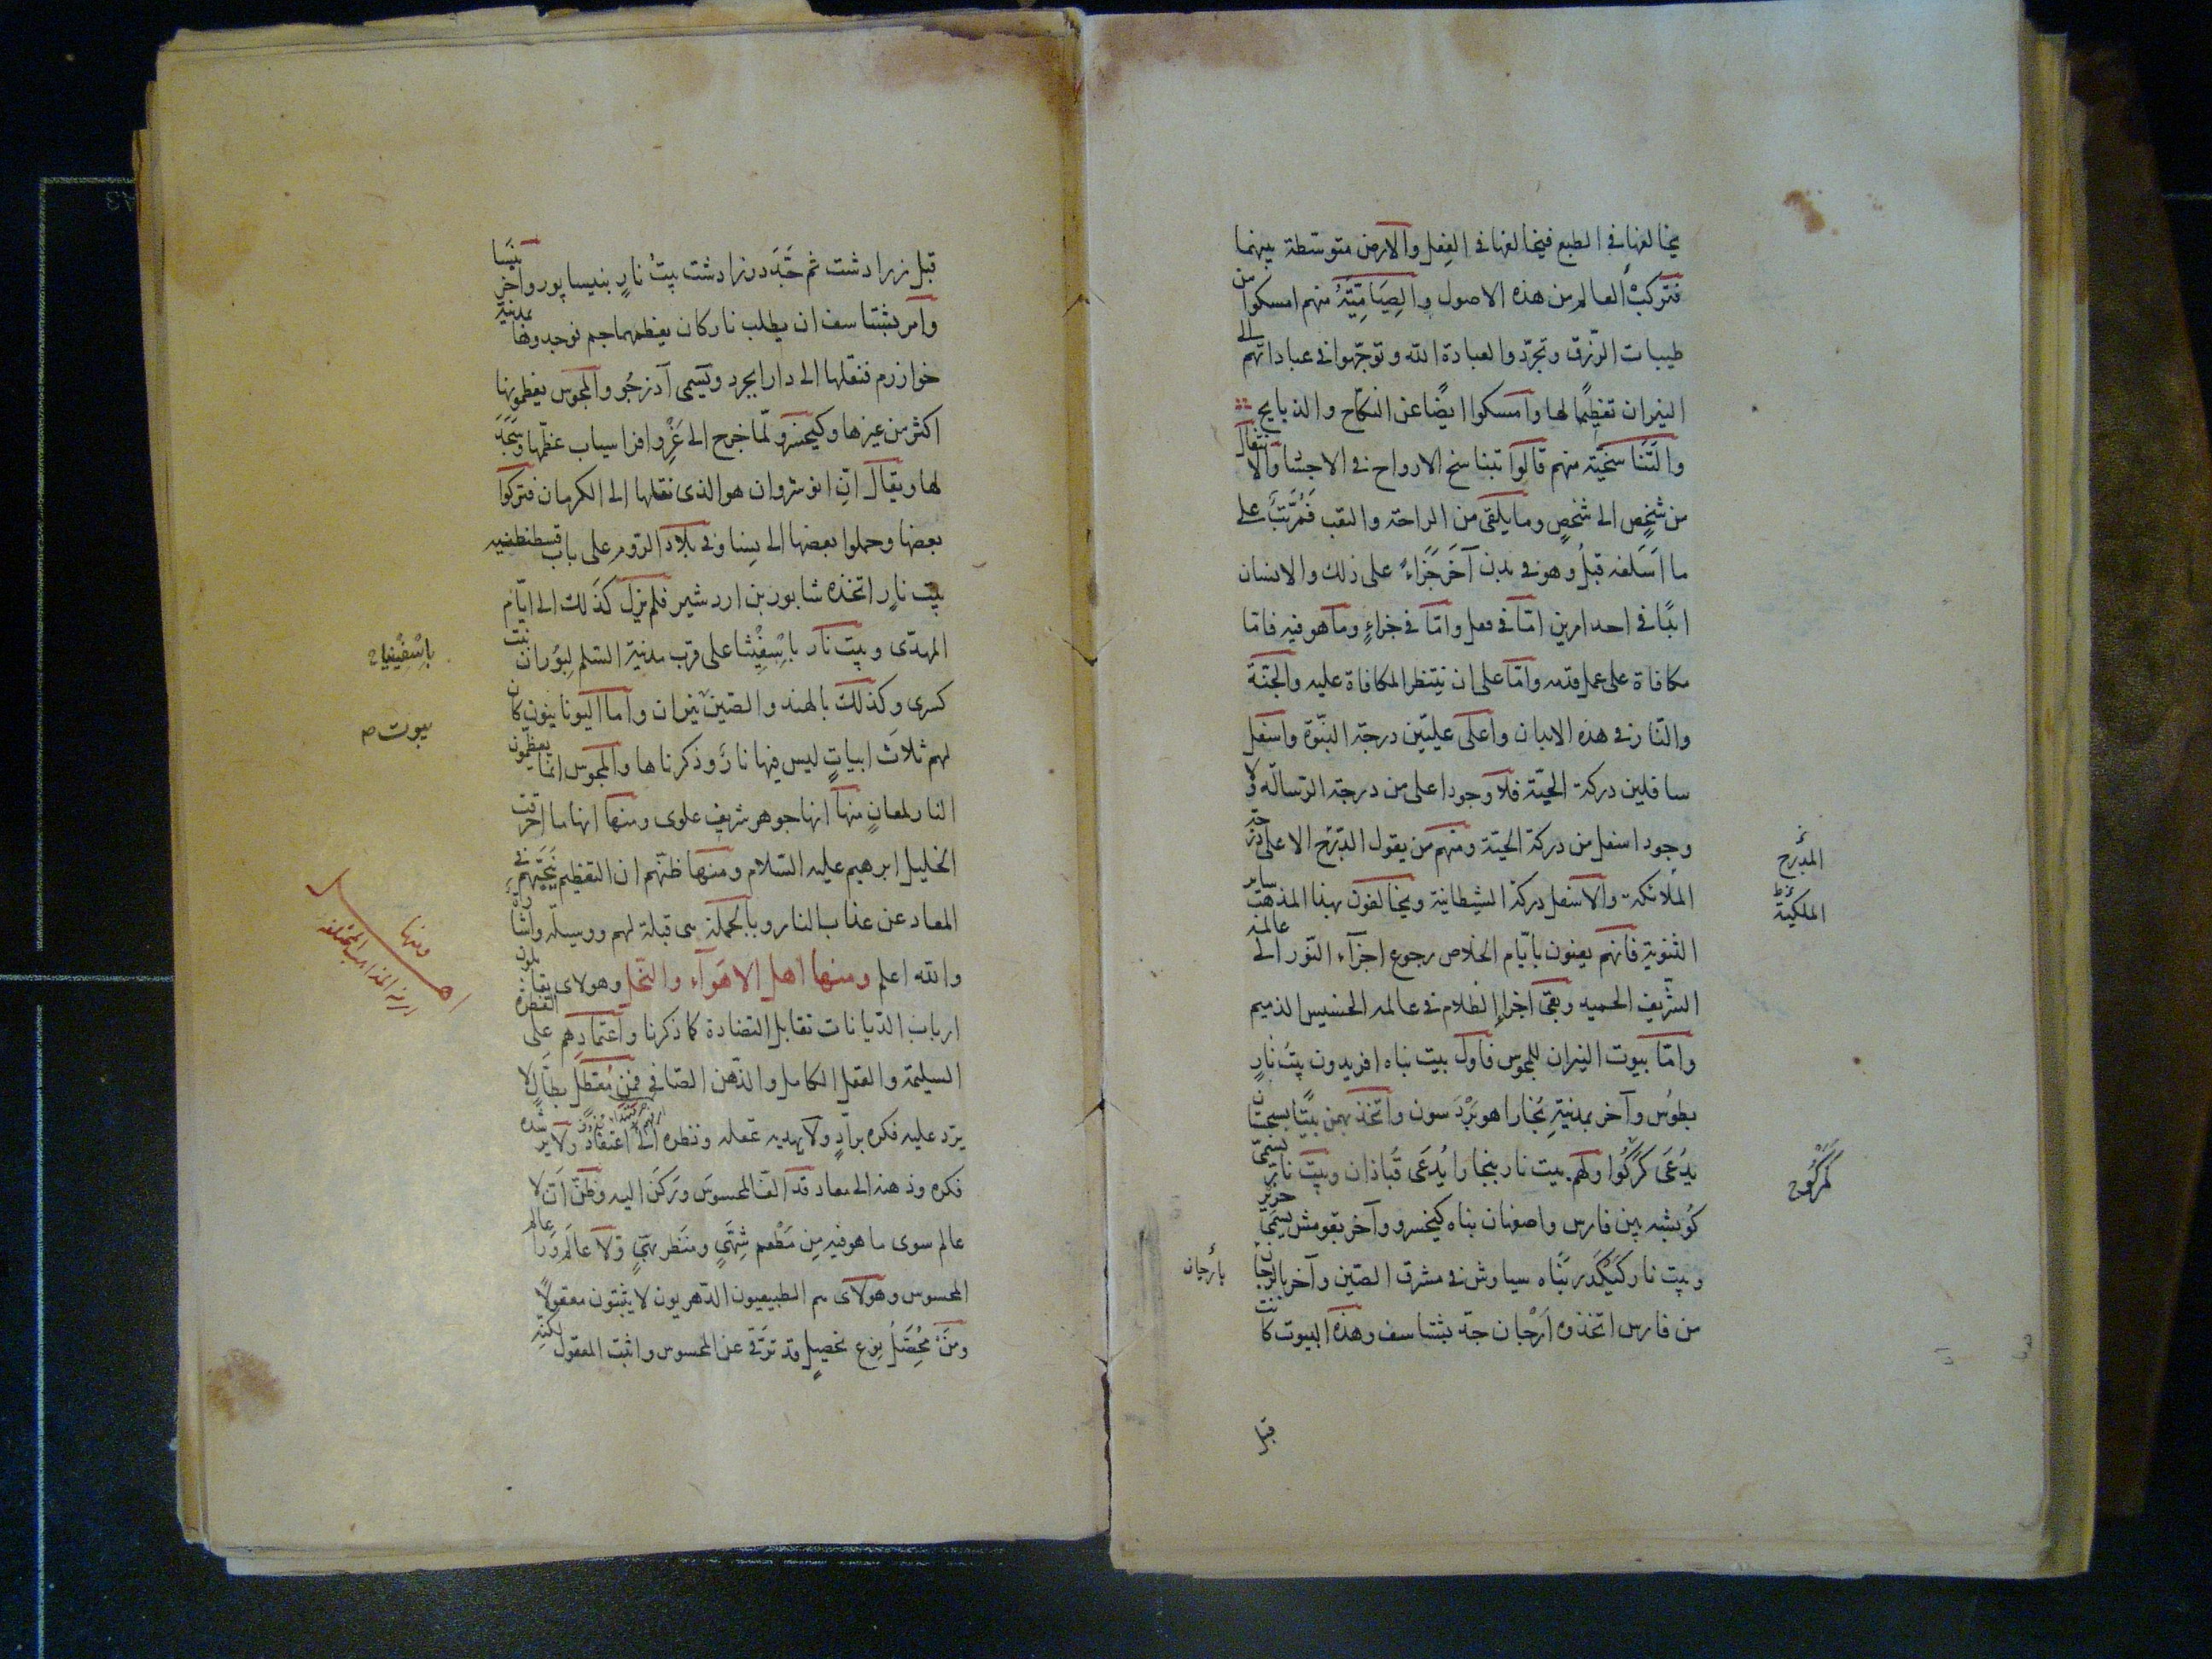 يخالفها في الطبع فيخالفها في الفعل والارض متوسطة بينهما
فتركب العالم من هذه الاصول والصيامية منهم امسكوا من
طيبات الرزق وتجردوا لعبادة الله وتوجهوا في عباداتهم الى
النيران تعظيمًا لها وامسكوا ايضًا عن النكاح والذبايح
والتناسخية منهم قالوا بتناسخ الارواح في الاجساد والانتقال
من شخص الى شخص وما يلقى من الراحة والتعب فمرتب على
ما اسلفه قبل وهو في بدن آخر جزاءً على ذلك والانسان
ابدًا في احد امرين امّا في فعل وامّا في جزاءٍ وما هو فيه فامّا
مكافاة على عمل قدمه وامّا على ان ينتظر المكافاة عليه والجنة
والنار في هذه الابدان واعلى عليّين درجة النبوّة واسفل
سافلين دركة الحيّة فلا وجود اعلى من درجة الرسالة ولا
وجود اسفل من دركة الحيّة ومنهم من يقول الدرج الاعلى درجة
الملائكة والاسفل دركة الشيطانية ويخالفون بهذا المذهب ساير
الثنوية فانهم يعنون بايّام الخلاص رجوع اجزآء النور الى عالمه
الشريف الحميد وبقى اجزاء الظلام في عالمه الخسيس الذميم
وامّا بيوت النيران للمجوس فاول بيت بناه افريدون بيتُ نارٍ
بطوس وآخر بمدينة بخارا هو بردسون واتخذ بهمن بيتًا بسجستان
يدعى كركوا ولهم بيت نار ببخارا يدعى قباذان وبيت نار يسمى
كويشه بين فارس واصفهان بناه كيخسرو وآخر بقومش يسمى جرير
وبيت نار كنكدر بناه سياوش في مشرق الصين وآخر بارجان
من فارس اتخذه ارجان جد بشتاسف وهذه البيوت كانت
قبل
المدرج
الملكية
كركوى
بارجان
قبل زرادشت ثم جدد زرادشت بيتُ نارٍ بنيسابور وآخر بنسا
وامر بشتاسف ان يطلب نار كان يعظمها جم فوجدوها بمدينة
خوارزم فنقلها الى دارابجرد وتسمى آذرجو والمجوس يعظمونها
اكثر من غيرها وكيخسرو لمّا خرج الى غزو افراسياب عظمها وسجد
لها ويقال ان انوشروان هو الذى نقلها الى الكرمان فتركوا
بعضها وحملوا بعضها الى نسا وفي بلاد الروم على باب قسطنطنيه
بيت نار اتخذه شابور بن اردشير فلم يزل كذلك الى ايّام
المهدى وبيت نار باسفينثا على قرب مدينة السلم لبوران بنت
كسرى وكذلك بالهند والصين نيران واما اليونانيون كان
لهم ثلاث ابيات ليس فيها نار وذكرناها والمجوس انما يعظمون
النار لمعانٍ منها انها جوهر شريف علوى ومنها انها ما احرقت
الخليل ابرهيم عليه السلام ومنها ظنهم ان التعظيم ينجيهم في
المعاد عن عذاب النار وبالجملة هى قبلة لهم ووسيلة واشارة
والله اعلم ومنها اهل الاهوآء والنحل وهولاى يقابلون
ارباب الديانات تقابل التضادة كما ذكرنا واعتمادهم على الفطرة
السليمة والعقل الكامل والذهن الصافى فمن معطل بطال لا
يرد عليه فكره برادٍ ولا يهديه عقله ونظره الى اعتقاد ولا يرشده
فكره وذهنه الى معاد قد الف المحسوس وركن اليه وظنّ ان لا
عالم سوى ما هو فيه من مطعم شهى ومنظر بهى ولا عالم ورا عالم
المحسوس وهولاى هم الطبيعيون الدهريون لا يثبتون معقولاً
ومن محصل نوع تحصيل قد ترقى عن المحسوس واثبت المعقول لكنه
باسفينيا
بيوت
ومنها
اهل